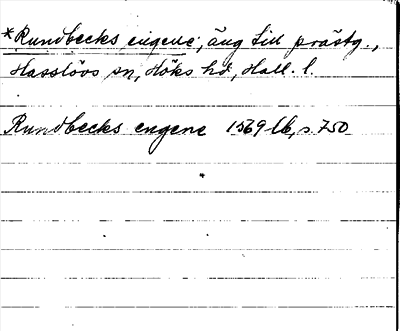 *Rundbecks engene; äng till prästg.,
Hasslövs sn, Höks hd, Hall. l.
Rundbecks engene 1569 lb, s. 750